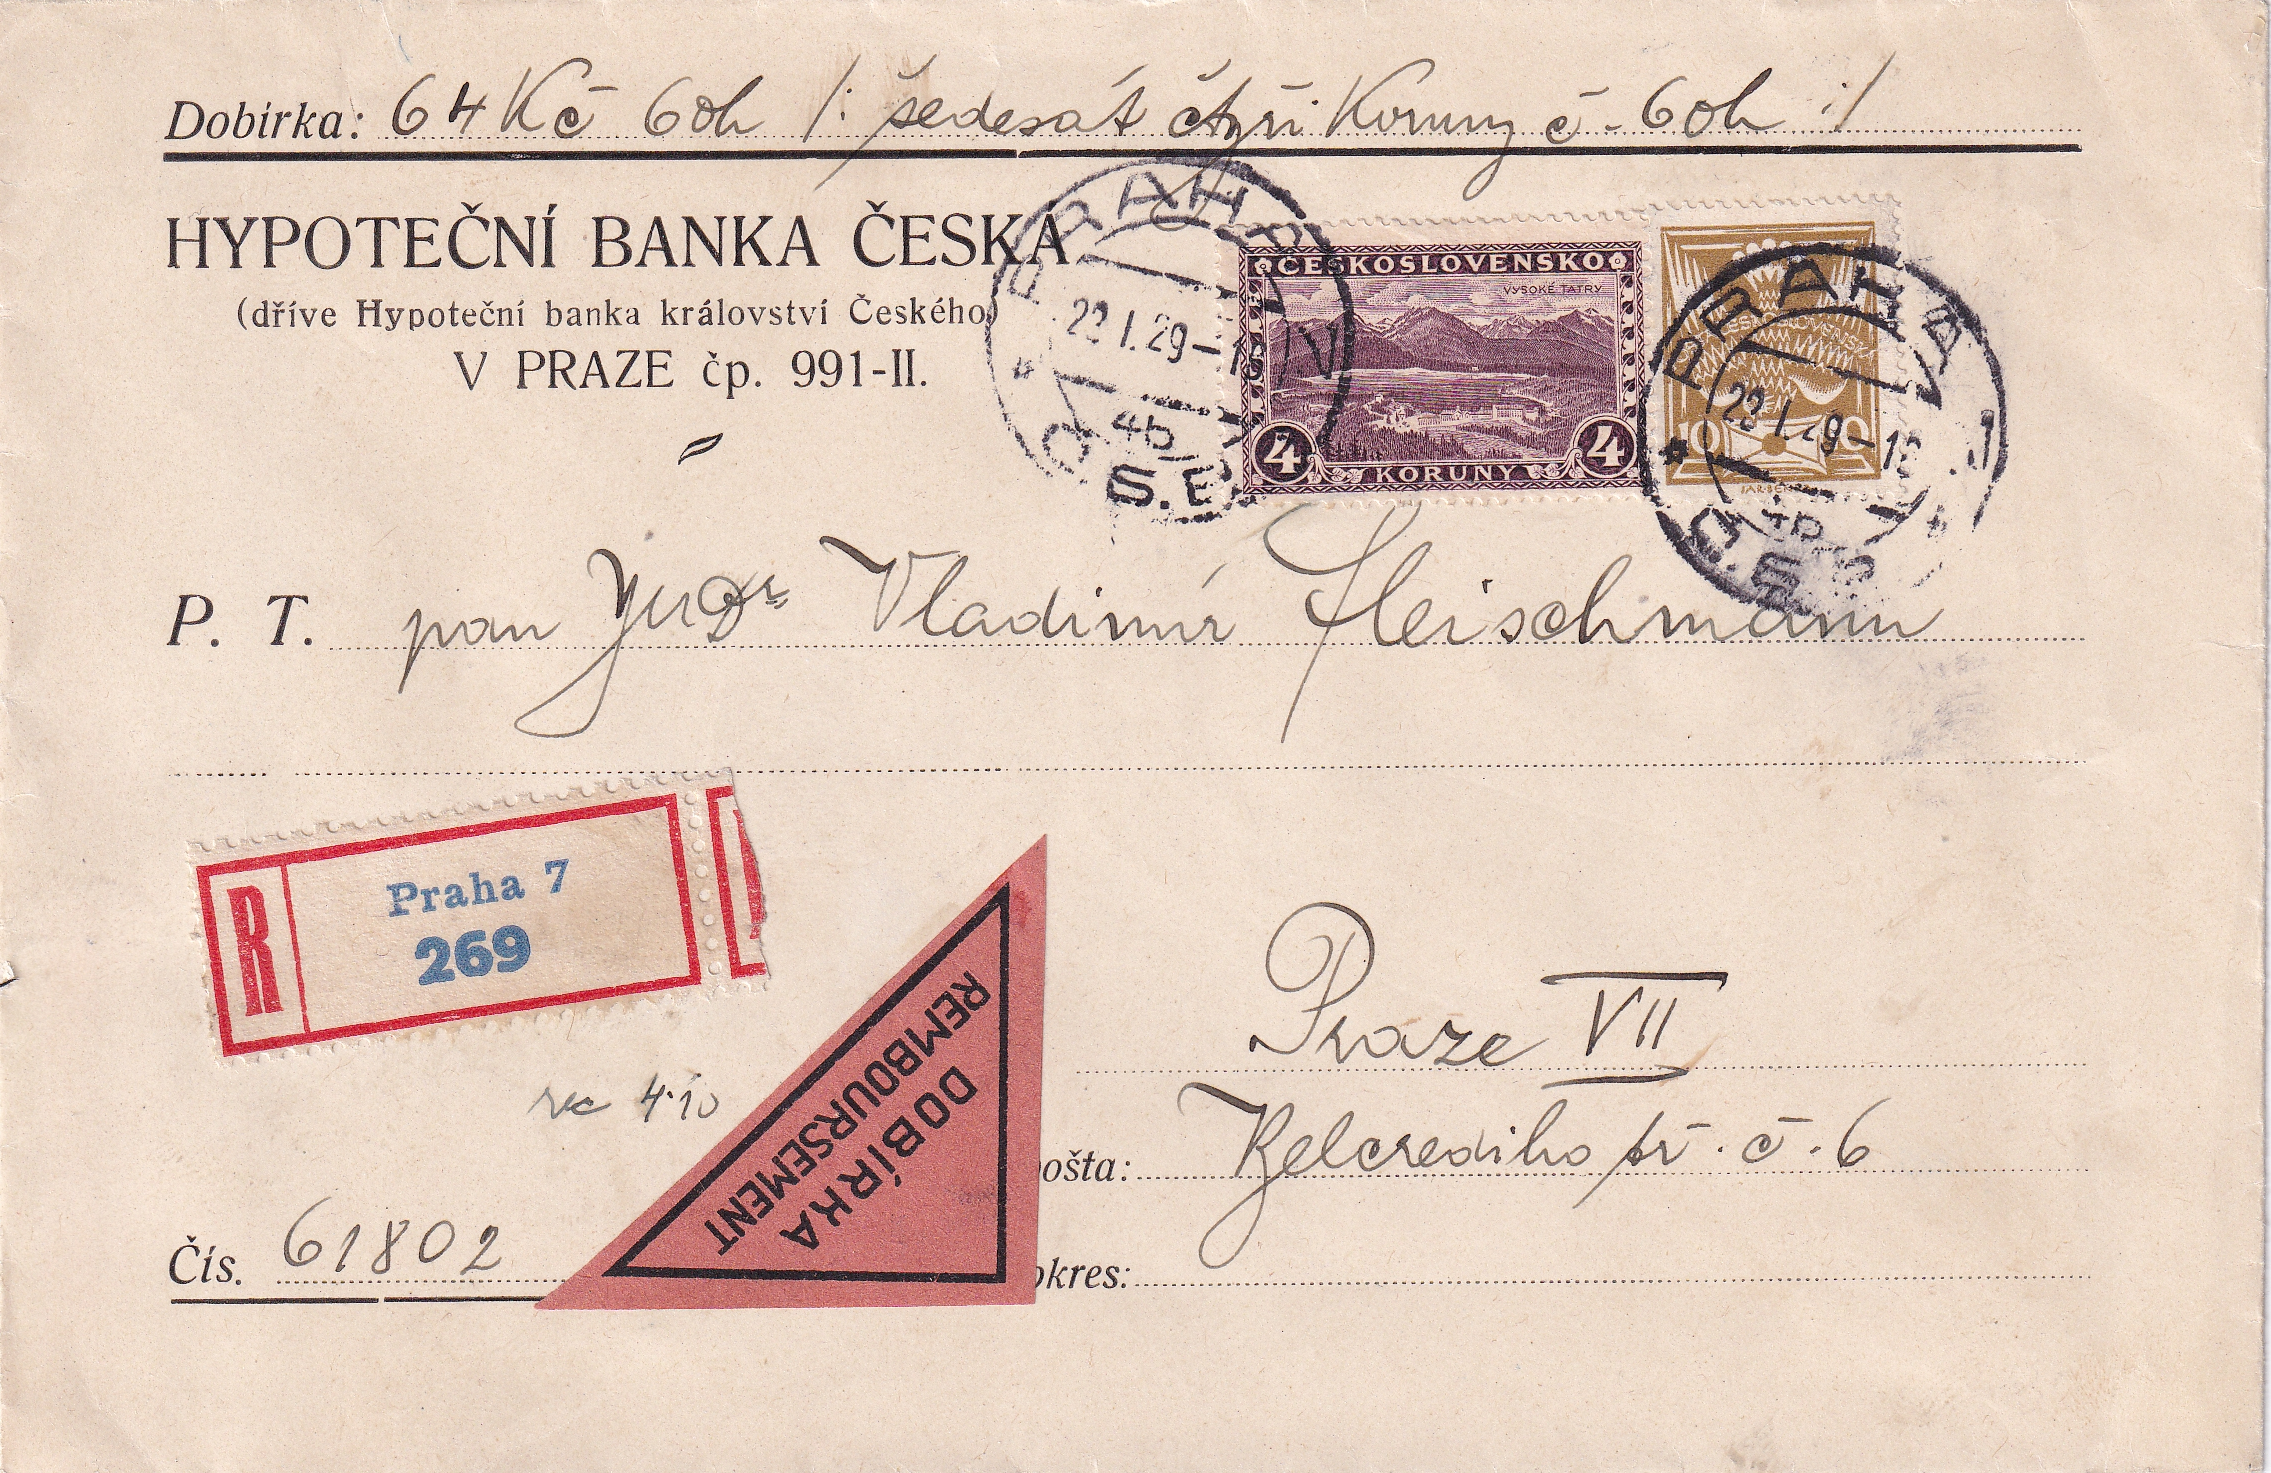 Dobírka: 64 Kč 60h /: šedesát čtyři Koruny č. 60h :/
HYPOTEČNÍ BANKA ČESKÁ
(dříve Hypoteční banka království Českého)
V PRAZE čp. 991-II.
PRAHA 7
22.I.29-1
4b
Č.S.P.
ČESKOSLOVENSKO
VYSOKÉ TATRY
4 KORUNY 4
PRAHA 7
22.I.29-1
4b
Č.S.
10 10
P. T. pan JUDr Vladimír Fleischmann
R
Praha 7
269
Praze VII
rec 4·10
DOBÍRKA
REMBOURSEMENT
ošta: Belcrediho tř. č. 6
Čís. 61802
okres: